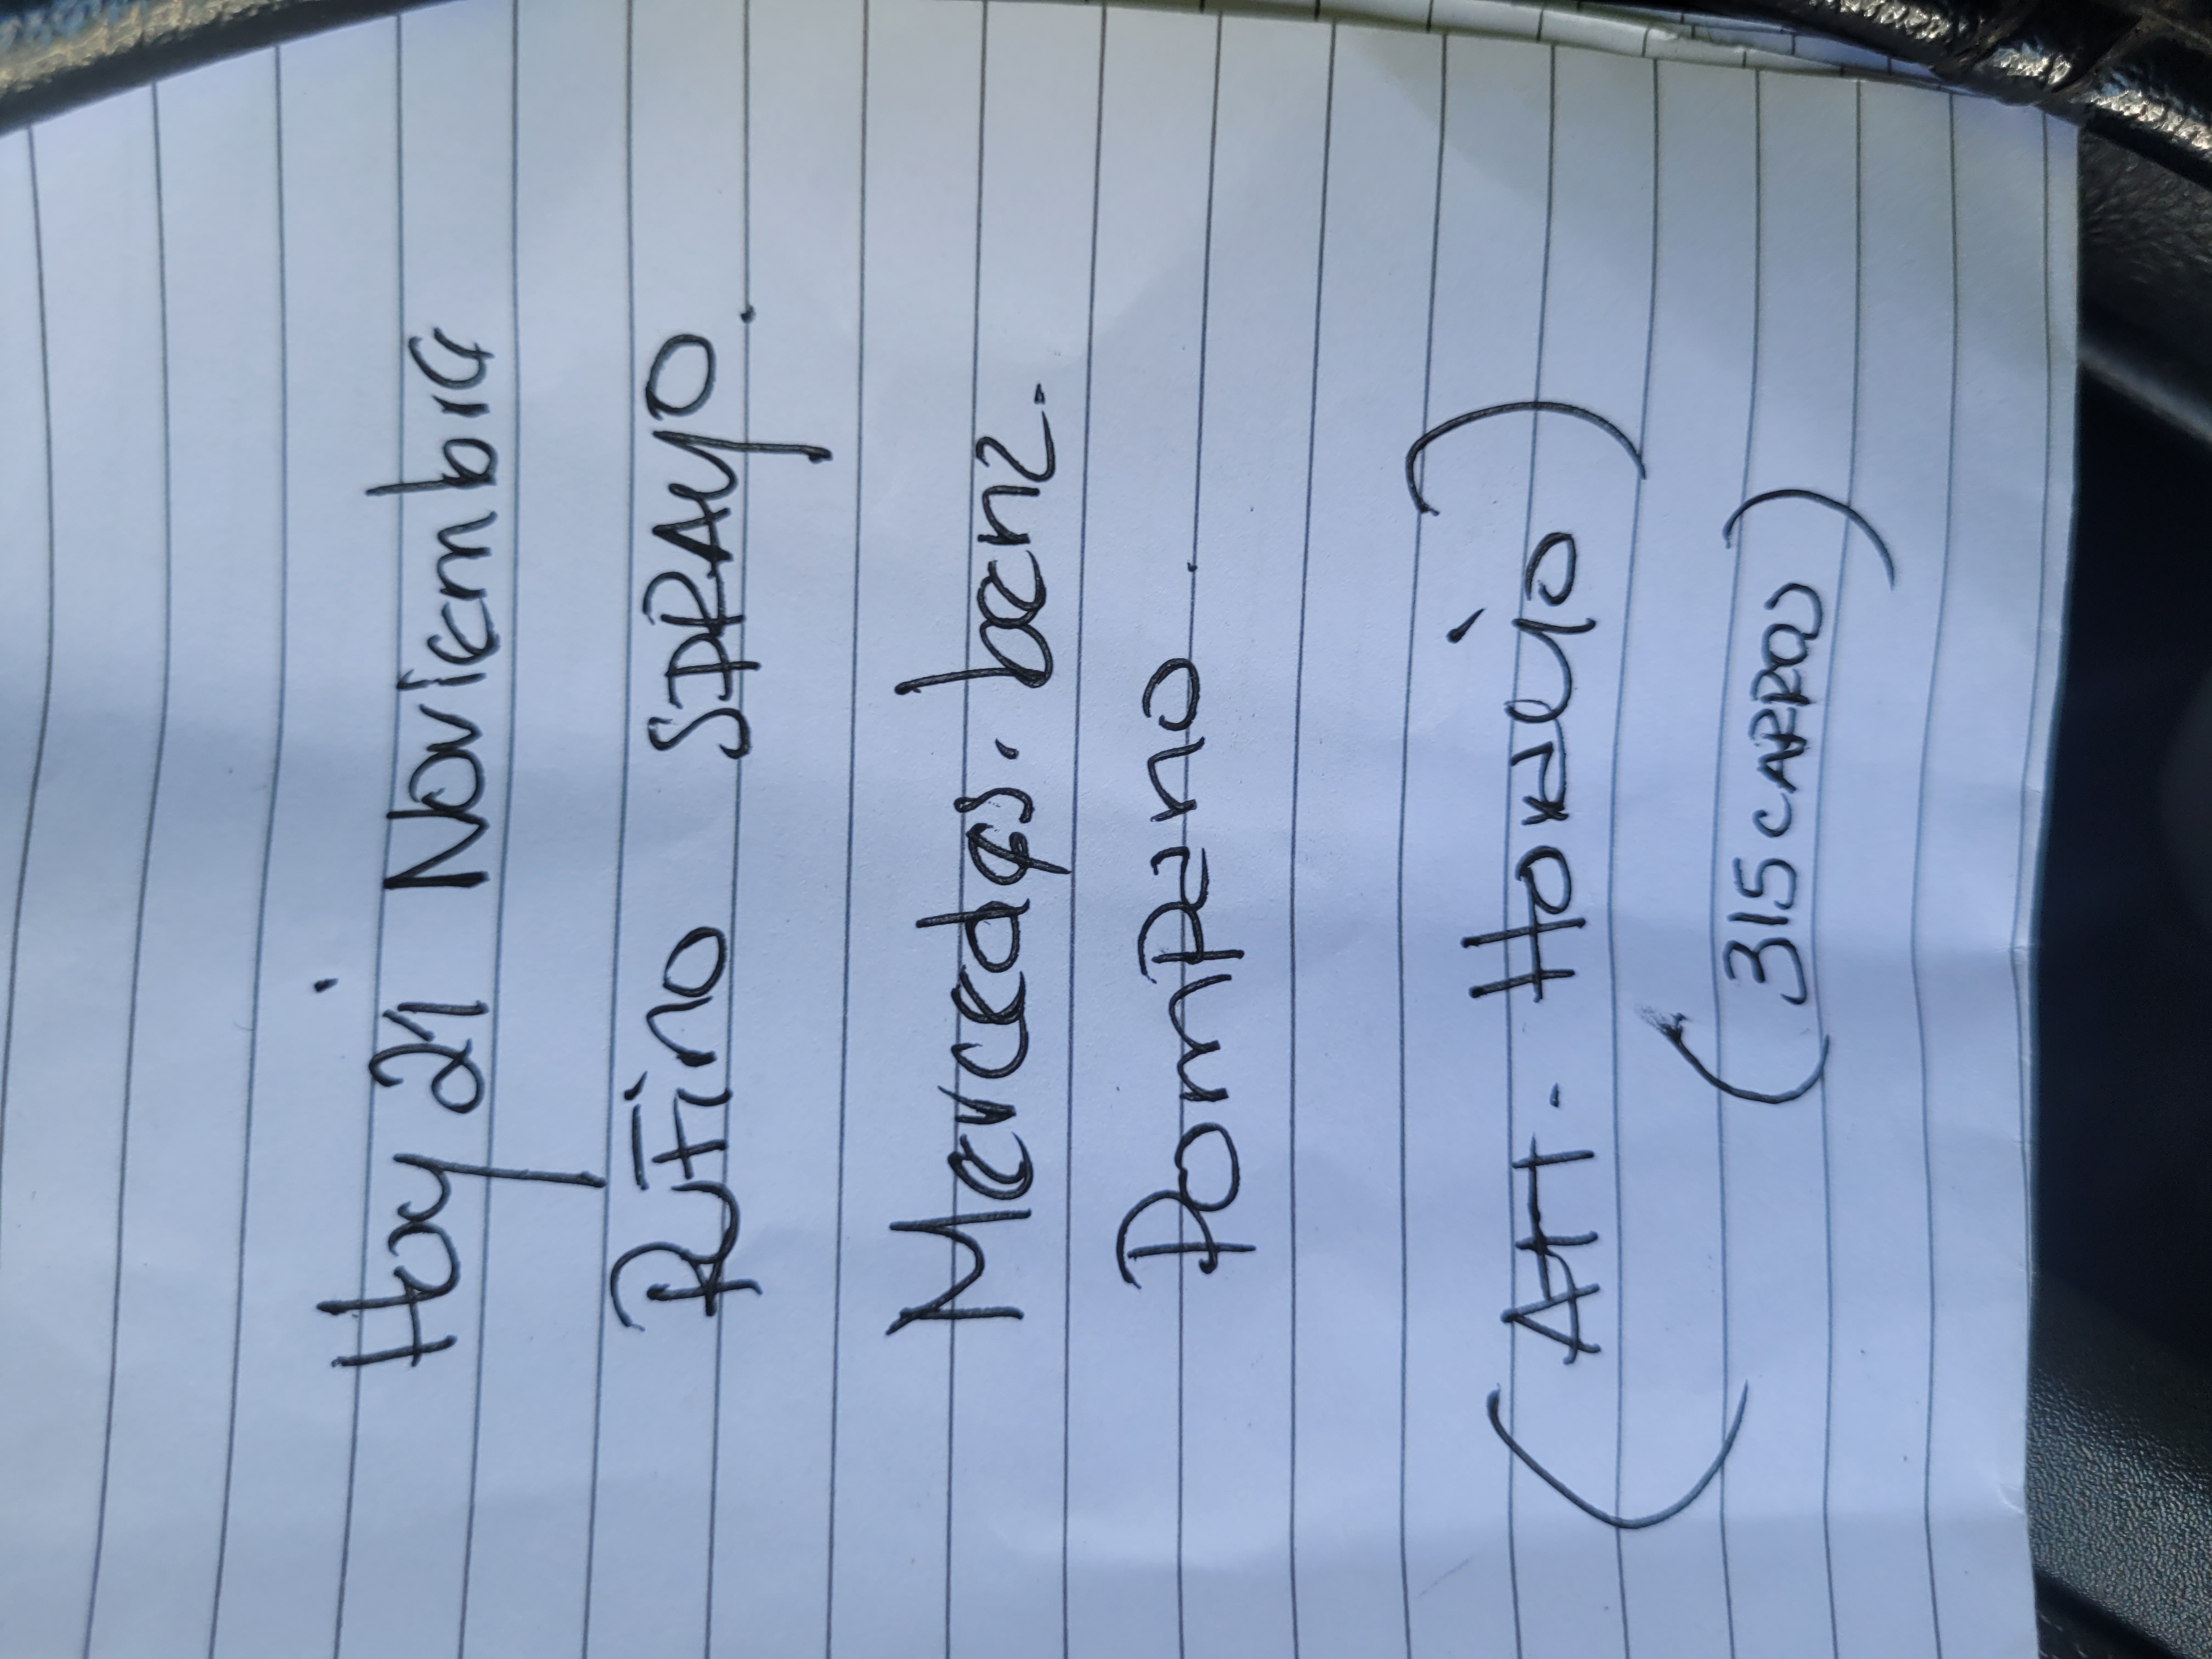 Hoy 21 Noviembre
Rufino SPRAYO.
Mercedes. benz.
Pompano.
(Att. Horacio)
(315 CARROS)